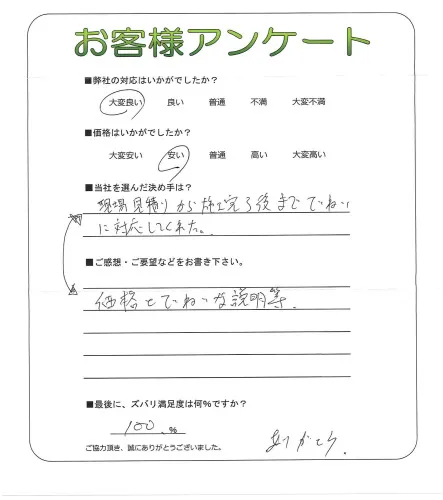 お客様アンケート
■弊社の対応はいかがでしたか？
大変良い 良い 普通 不満 大変不満
■価格はいかがでしたか？
大変安い 安い 普通 高い 大変高い
■当社を選んだ決め手は？
現場見積りから施工完了後までていねい
に対応してくれた。
■ご感想・ご要望などをお書き下さい。
価格とていねいな説明等、
■最後に、ズバリ満足度は何％ですか？
100 ％
ご協力頂き、誠にありがとうございました。
ありがとう、